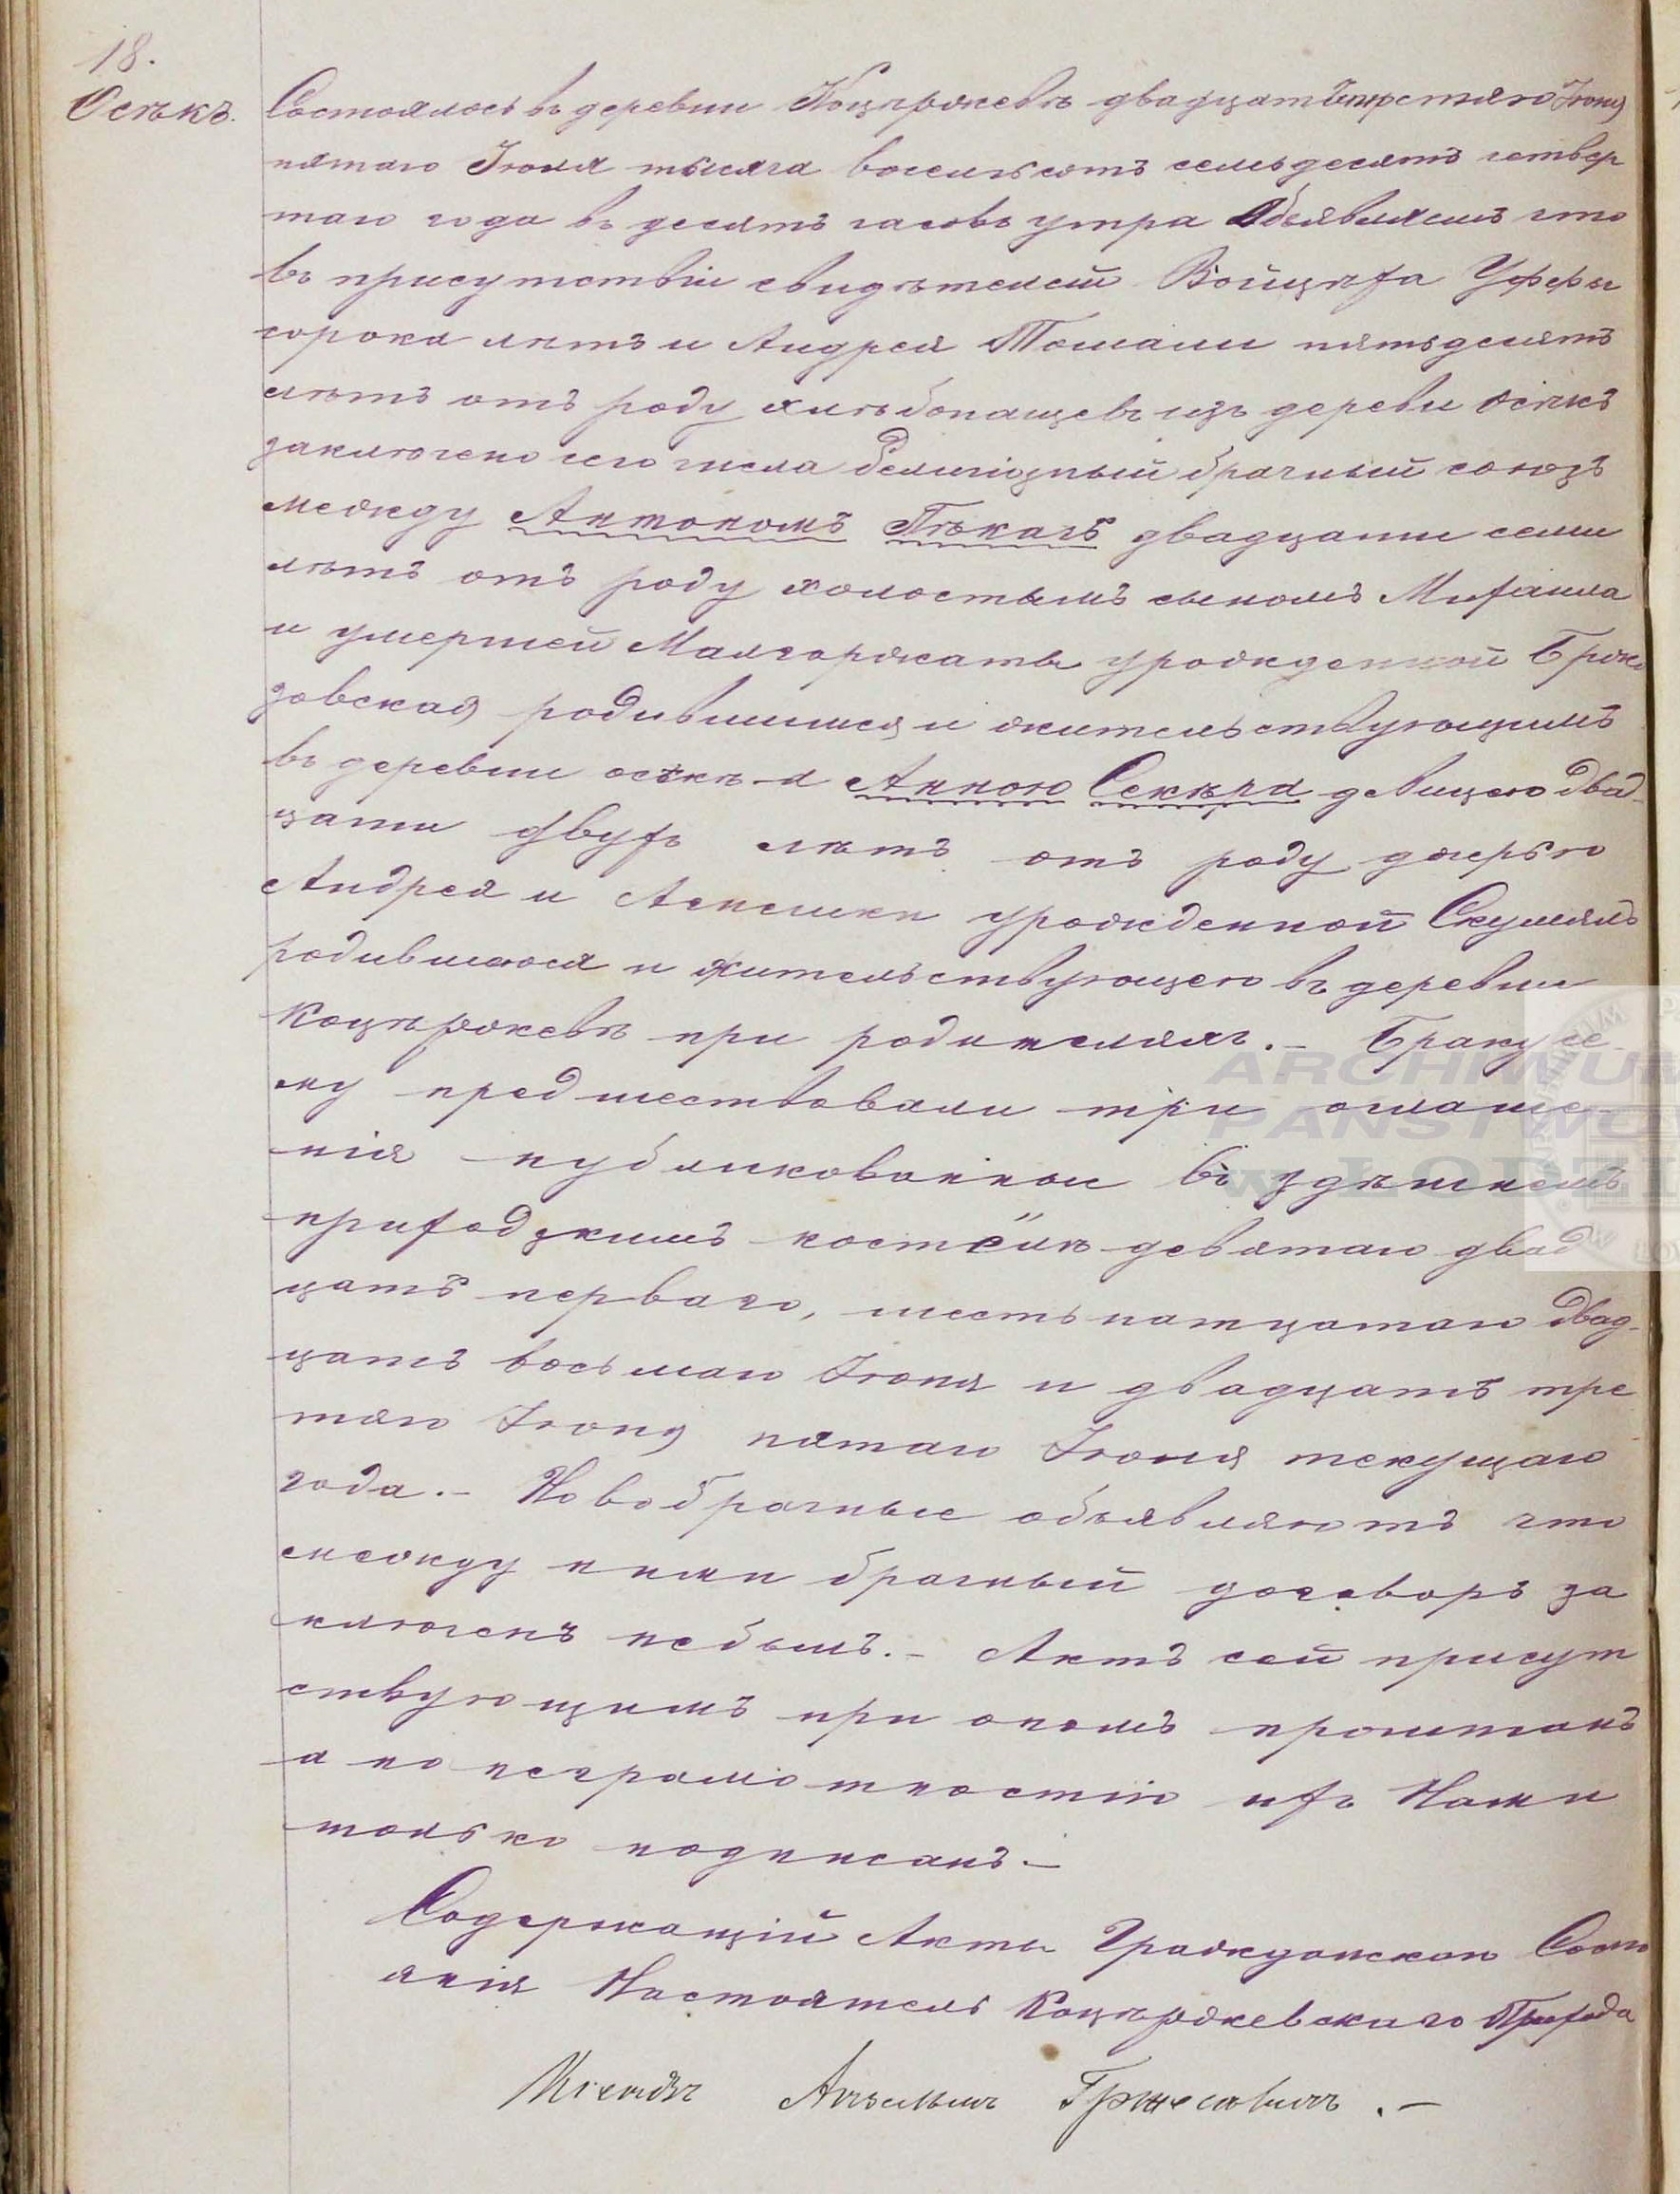 18.
Осѣкъ.
Состоялось въ деревни Коцѣржевѣ двадцать Іюня
пятаго Іюля тысяча восемьсотъ семьдесятъ четвер
таго года въ десять часовъ утра Объявляемъ что
въ присутствіи свидѣтелей Войцѣха Уферы
сорока лѣтъ и Андрея Томали пятьдесятъ
лѣтъ отъ роду хлѣбопащевъ изъ деревни Осѣкъ
заключено сего числа Религіозный брачный союзъ
между Антономъ Пѣкачъ двадцати семи
лѣтъ отъ роду холостымъ сыномъ Михаила
и умершей Малгоржаты урожденной
зовская родившимся и жительствующимъ
въ деревни осѣкѣ и Анною Секѣра дѣвицею двад-
цати двухъ лѣтъ отъ роду дочерью
Андрея и Агнешки урожденной
родившеюся и жительствующею въ деревни
Коцѣржевѣ при родителяхъ.- Браку се-
му предшествовали три оглаше-
нія публикованныи въ здѣшнемъ
приходзкимъ костёлѣ девятаго двад
цать перваго, шестьнатцатаго двад-
цать восьмаго Іюня и двадцать тре
тяго Іюня пятаго Іюля текущаго
года.- Новобрачные объявляютъ что
между ними брачный договоръ за
ключенъ небылъ.- Актъ сей присут
ствующимъ при ономъ прочитанъ
а по неграмотностію ихъ Нами
только подписанъ.-
Содержащій Акты Гражданскаго Состо
янія Настоятель Коцѣржевскаго Прихода
Ксендзъ
ARCHIWUM
PAŃSTWO
w ŁODZI